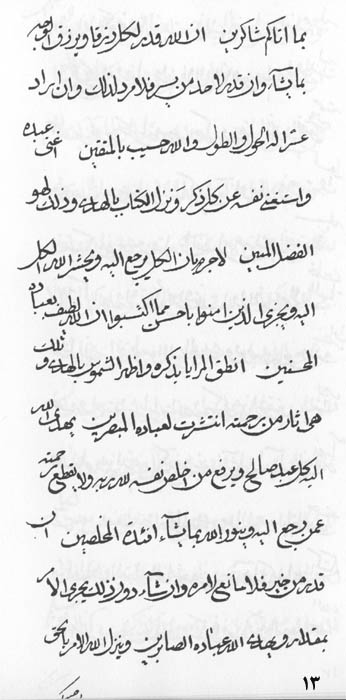 بما اتاكم شاكرين ان الله قدر لكل رزقا ويرزق
بما يشاء وان قدر لاحد من يسر فلا مرد لذلك وان اراد
عسرا له الحول والطول والله حسيب بالمتقين اغنى عبده
واستغنى نفسه عن كل ذكر ونزل الكتاب بالهدى وذلك لهو
الفضل المبين لا جرم بان الكل يرجع اليه ويحشر الله الكل
اليه ويجزى الذين امنوا باحسن مما اكتسبوا ان الله لطيف بعباده
المحسنين انطق المرايا بذكره واظهر الشموس بالهدى وتلك
هى اثار من رحمته انتشرت لعباده المبصرين يهدى الله
اليه كل عبد صالح ويرفع من اخلص نفسه لله ربه ولا تقطع رحمته
عمن رجع اليه وينور الله بما يشاء افئدة المخلصين ان
قدر من خير فلا مانع لامره وان شاء دون ذلك يجرى الامر
بمقداره ويهدى الله عباده الصابرين وينزل الله الامر بالحق
١٣